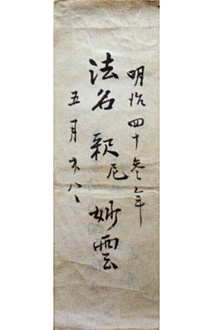 明治四十参年
法名釈尼妙雲
五月廿八